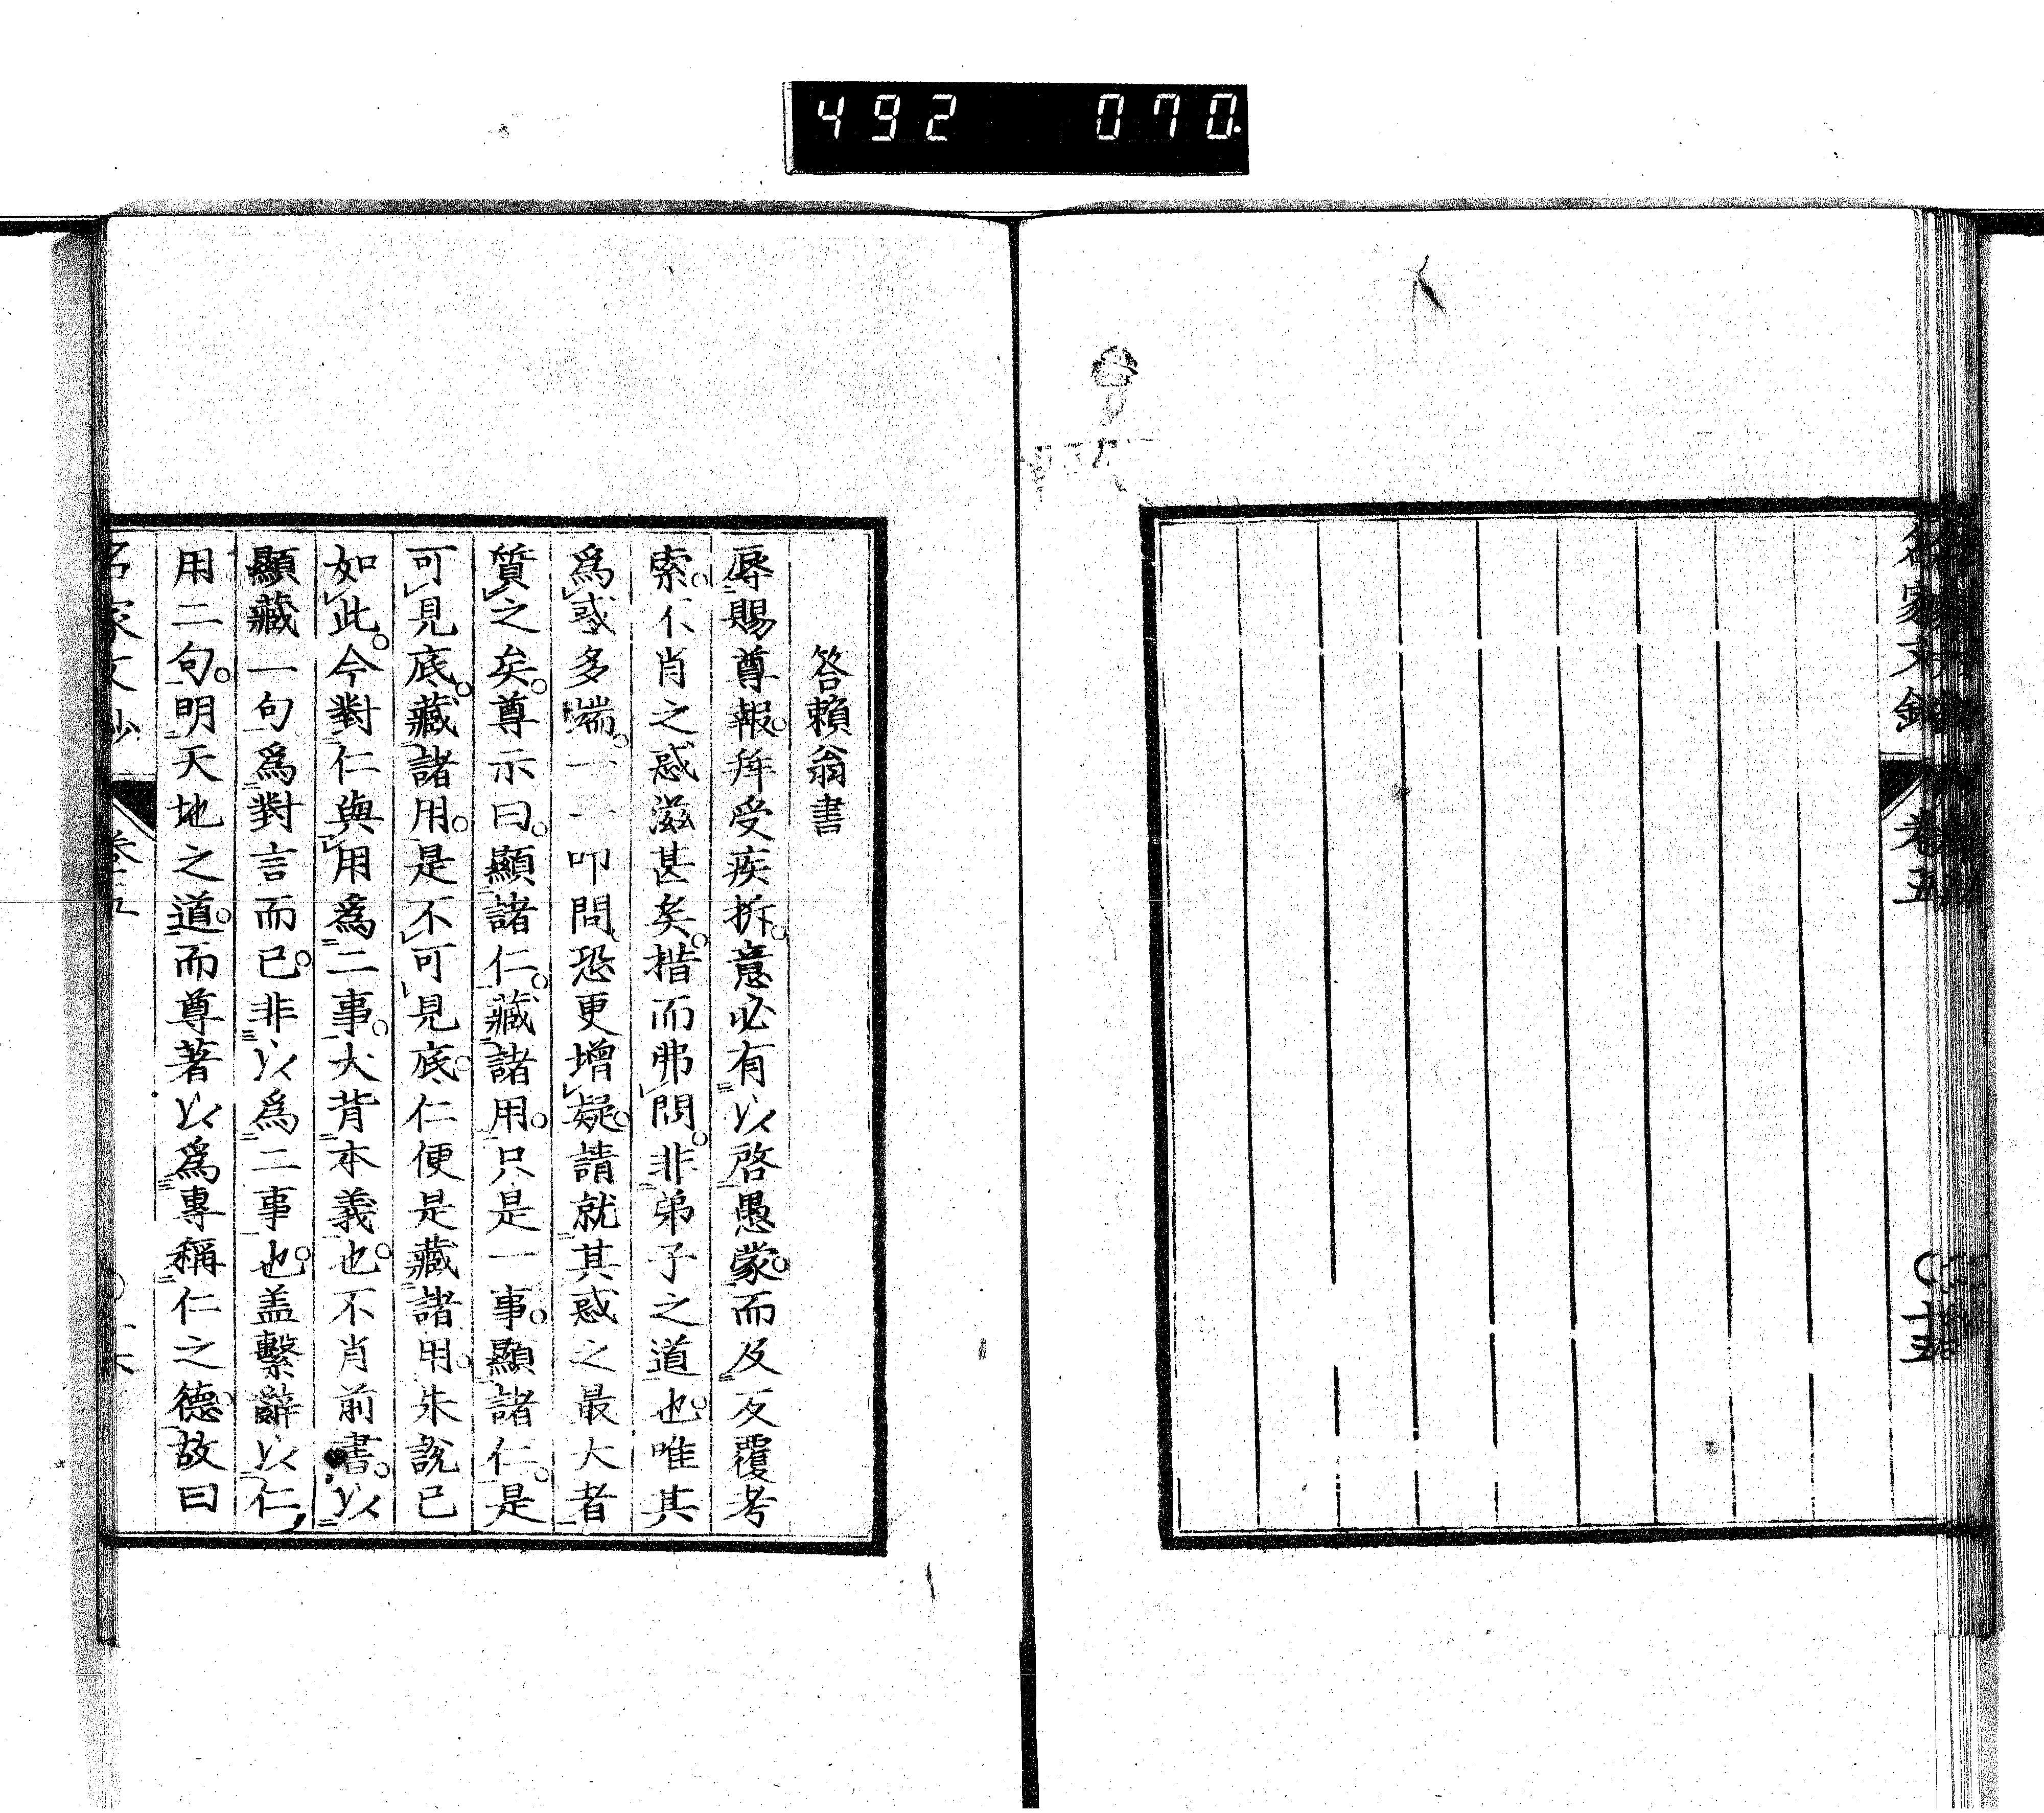 492 070
名家文鈔
卷五
十五
答賴翁書
辱賜尊報拜受疾拆意必有以啓愚蒙而反反覆考
索不肖之惑滋甚矣揩而弗問非弟子之道也唯其
爲惑多端一一叩問恐更增疑請就其惑之最大者
質之矣尊示曰顯諸仁藏諸用只是一事顯諸仁是
可見底藏諸用是不可見底仁便是藏諸用朱說已
如此今對仁與用爲二事大背本義也不肖前書以
顯藏一句爲對言而已非以爲二事也盖繫辭以仁
用二句明天地之道而尊著以爲專稱仁之德故曰
名家文鈔
卷五